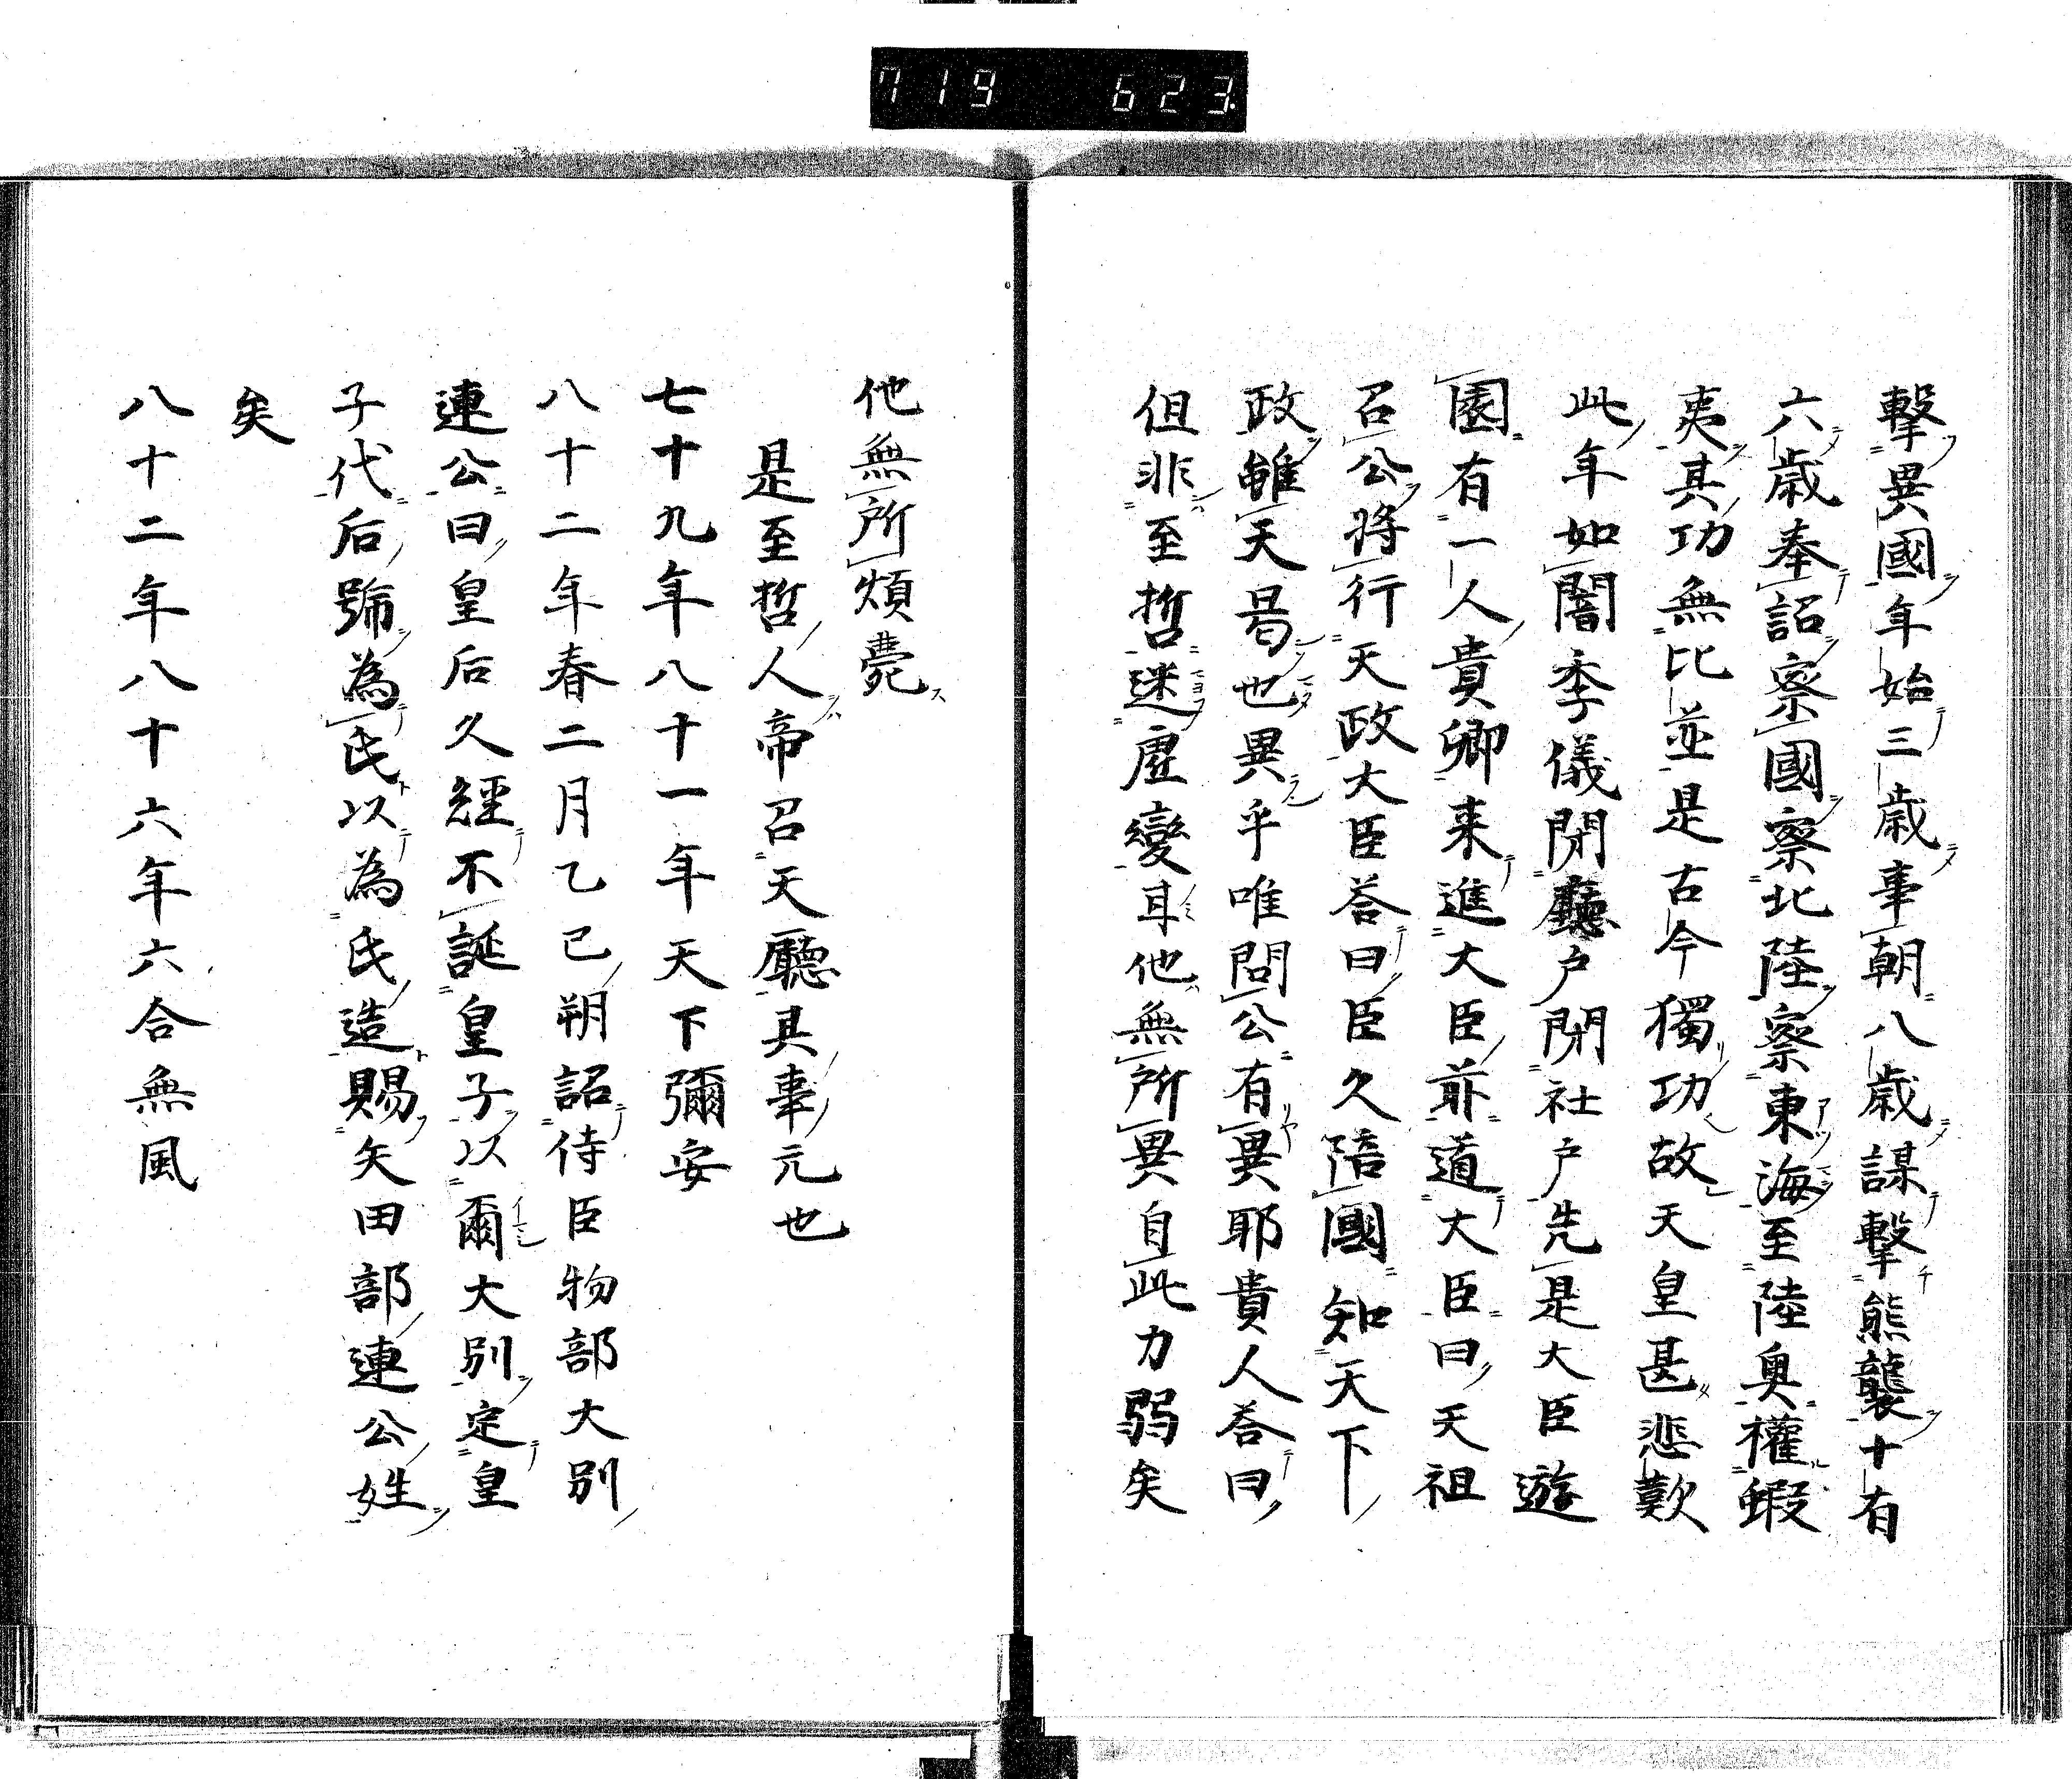 719 623
撃異國年始三歳事朝八歳謀撃熊襲十有
六歳奉詔察國察北陸察東海至陸奥權蝦
夷其功無比並是古今獨功故天皇甚悲歎
此年如闇季儀閇廳戸閇社戸先是大臣遊
園有一人貴卿来進大臣前道大臣曰天祖
召公将行天政大臣荅曰臣久陪國知天下
政雖天曷也異乎唯問公有異耶貴人荅曰
但非至哲迷虚變耳他無所異自此力弱矣
他無所煩薨
是至哲人帝召天廳其事元也
七十九年八十一年天下彌安
八十二年春二月乙巳朔詔侍臣物部大別
連公曰皇后久經不誕皇子以爾大別定皇
子代后號為氏以為氏造賜矢田部連公姓
矣
八十二年八十六年六合無風